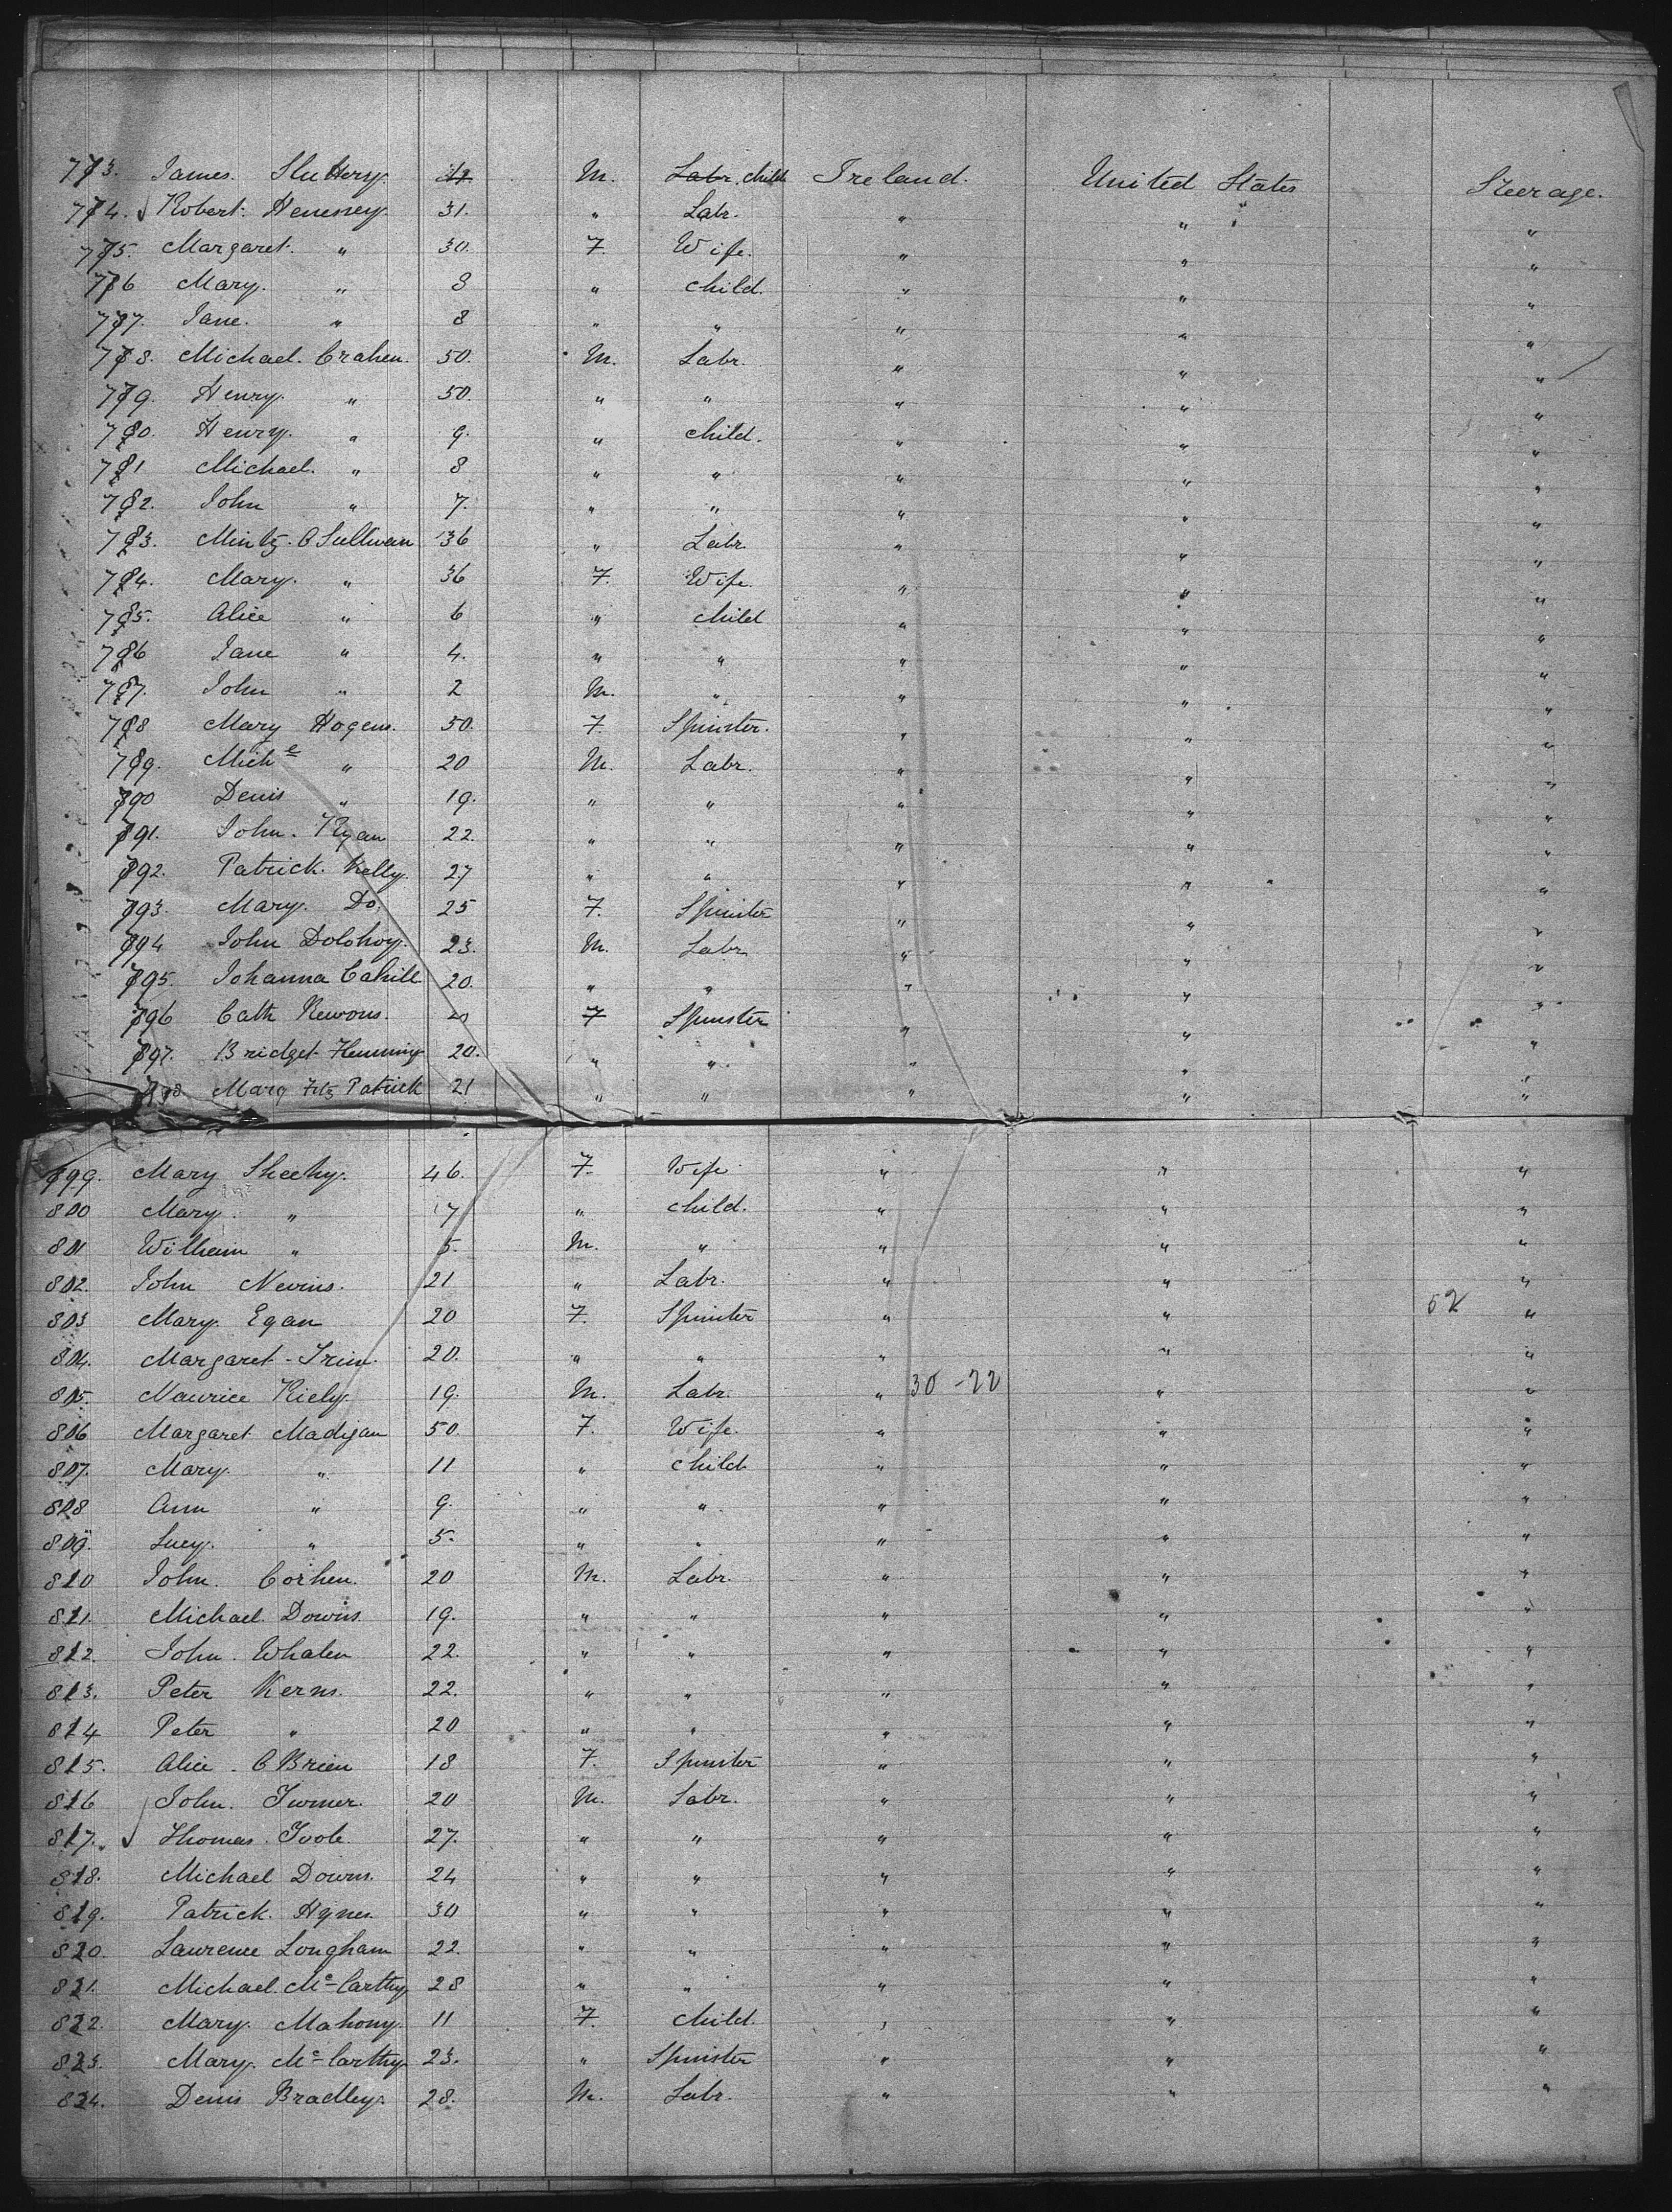 773. James. Sluttery. M. Labr. child Ireland. United States Steerage.
774. Robert. Henessey. 31. " Labr. " " "
775. Margaret. " 30. F. Wife. " " "
776 Mary. " 8 " child. " " "
777. Jane. " 8 " " " " "
778. Michael. Crahen. 50. M. Labr. " " "
779. Henry. " 50. " " " " "
780. Henry. " 9. " child. " " "
781 Michael. " 8 " " " " "
782. John " 7. " " " " "
783. O Sullivan 36 " Labr. " " "
784. Mary. " 36 F. Wife. " " "
785. Alice " 6 " child " " "
786 Jane " 4. " " " " "
787. John " 2 M. " " " "
788 Mary Hogens. 50. F. Spinster. " " "
789. Mich e " 20 M. Labr. " " "
790 Denis " 19. " " " " "
791. John. Ryan 22. " " " " "
792. Patrick. Kelly. 27 " " " " "
793. Mary. Do. 25 F. Spinster " " "
794 John Dolohoy. 23. M. Labr " " "
795. Johanna Cahill 20. " " " " "
796 Cath Newons. 20 F Spinster " " "
797. Bridget Flemming 20. " " " " "
798 Marg Fitz Patrick 21 " " " " "
799. Mary Sheehy. 46. F. Wife " " "
800 Mary. " 7 " child. " " "
801 Wilheim " 5. M. " " " "
802. John Nevins. 21 " Labr. " " "
803 Mary. Egan 20 F. Spinster " " 52 "
804. Margaret 20. " " " " "
805. Maurice Kiely. 19. M. Labr. " 30 - 22 " "
806 Margaret Madigan 50. F. Wife. " " "
807. Mary. " 11 " child " " "
808 Ann " 9. " " " " "
809. Lucy. " 5. " " " " "
810 John. Corhen. 20 M. Labr. " " "
811. Michael. Downs. 19. " " " " "
812. John. Whalen 22. " " " " "
813. Peter Kerns. 22. " " " " "
814 Peter " 20 " " " " "
815. Alice. O Brien 18 F. Spinster " " "
816 John. Turner. 20 M. Labr. " " "
817. Thomas. Toole. 27. " " " " "
818. Michael Downs. 24 " " " " "
819. Patrick. Hynes. 30 " " " " "
820. Laurence Longham 22. " " " " "
821. Michael. Mc Carthy 28 " " " " "
822. Mary. Mahony. 11 F. child. " " "
823. Mary. Mc Carthy. 23. " Spinster " " "
824. Denis Bradley. 28. M. Labr. " " "